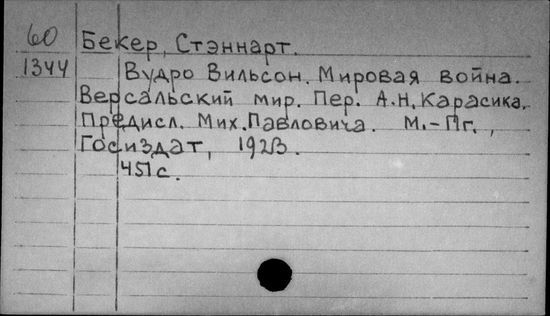 60 Бекер, Стэннарт.
1344 Вудро Вильсон. Мировая война.
Версальский мир. Пер. А.Н. Карасика.
Предисл. Мих. Павловича. М.-Пг.,
Госиздат, 1923.
451 с.